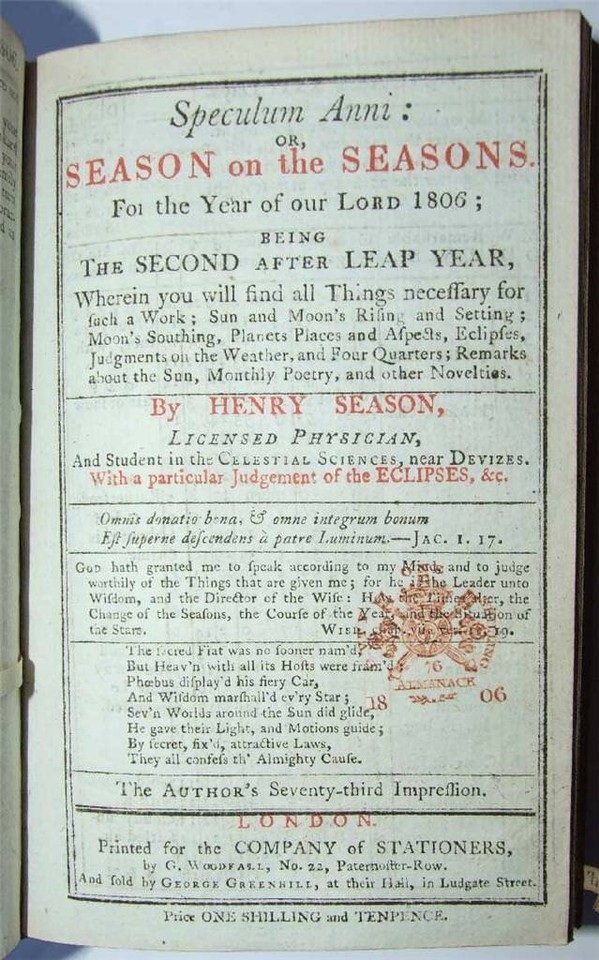 Speculum Anni:
OR,
SEASON on the SEASONS.
For the Year of our LORD 1806;
BEING
THE SECOND AFTER LEAP YEAR,
Wherein you will find all Things neceſſary for
ſuch a Work; Sun and Moon's Riſing and Setting;
Moon's Southing, Planets Places and Aſpects, Eclipſes,
Judgments on the Weather, and Four Quarters; Remarks
about the Sun, Monthly Poetry, and other Novelties.
By HENRY SEASON,
LICENSED PHYSICIAN,
And Student in the CELESTIAL SCIENCES, near DEVIZES.
With a particular Judgement of the ECLIPSES, &c.
Omnis donatio bona, & omne integrum bonum
Eſt ſuperne deſcendens à patre Luminum.—JAC. I. 17.
GOD hath granted me to ſpeak according to my Mind, and to judge
worthily of the Things that are given me; for he is the Leader unto
Wiſdom, and the Director of the Wiſe: How the Times alter, the
Change of the Seaſons, the Courſe of the Year, and the Situation of
the Stars. WISD. 19.
The ſacred Fiat was no ſooner nam'd,
But Heav'n with all its Hoſts were fram'd:
Phœbus diſplay'd his fiery Car,
And Wiſdom marſhall'd ev'ry Star;
Sev'n Worlds around the Sun did glide,
He gave their Light, and Motions guide;
By ſecret, fix'd, attractive Laws,
They all confeſs th' Almighty Cauſe.
76
ALMANACK
18 06
The AUTHOR's Seventy-third Impreſſion.
LONDON.
Printed for the COMPANY of STATIONERS,
by G. WOODFALL, No. 22, Paternoſter-Row.
And ſold by GEORGE GREENHILL, at their Hall, in Ludgate Street.
Price ONE SHILLING and TENPENCE.